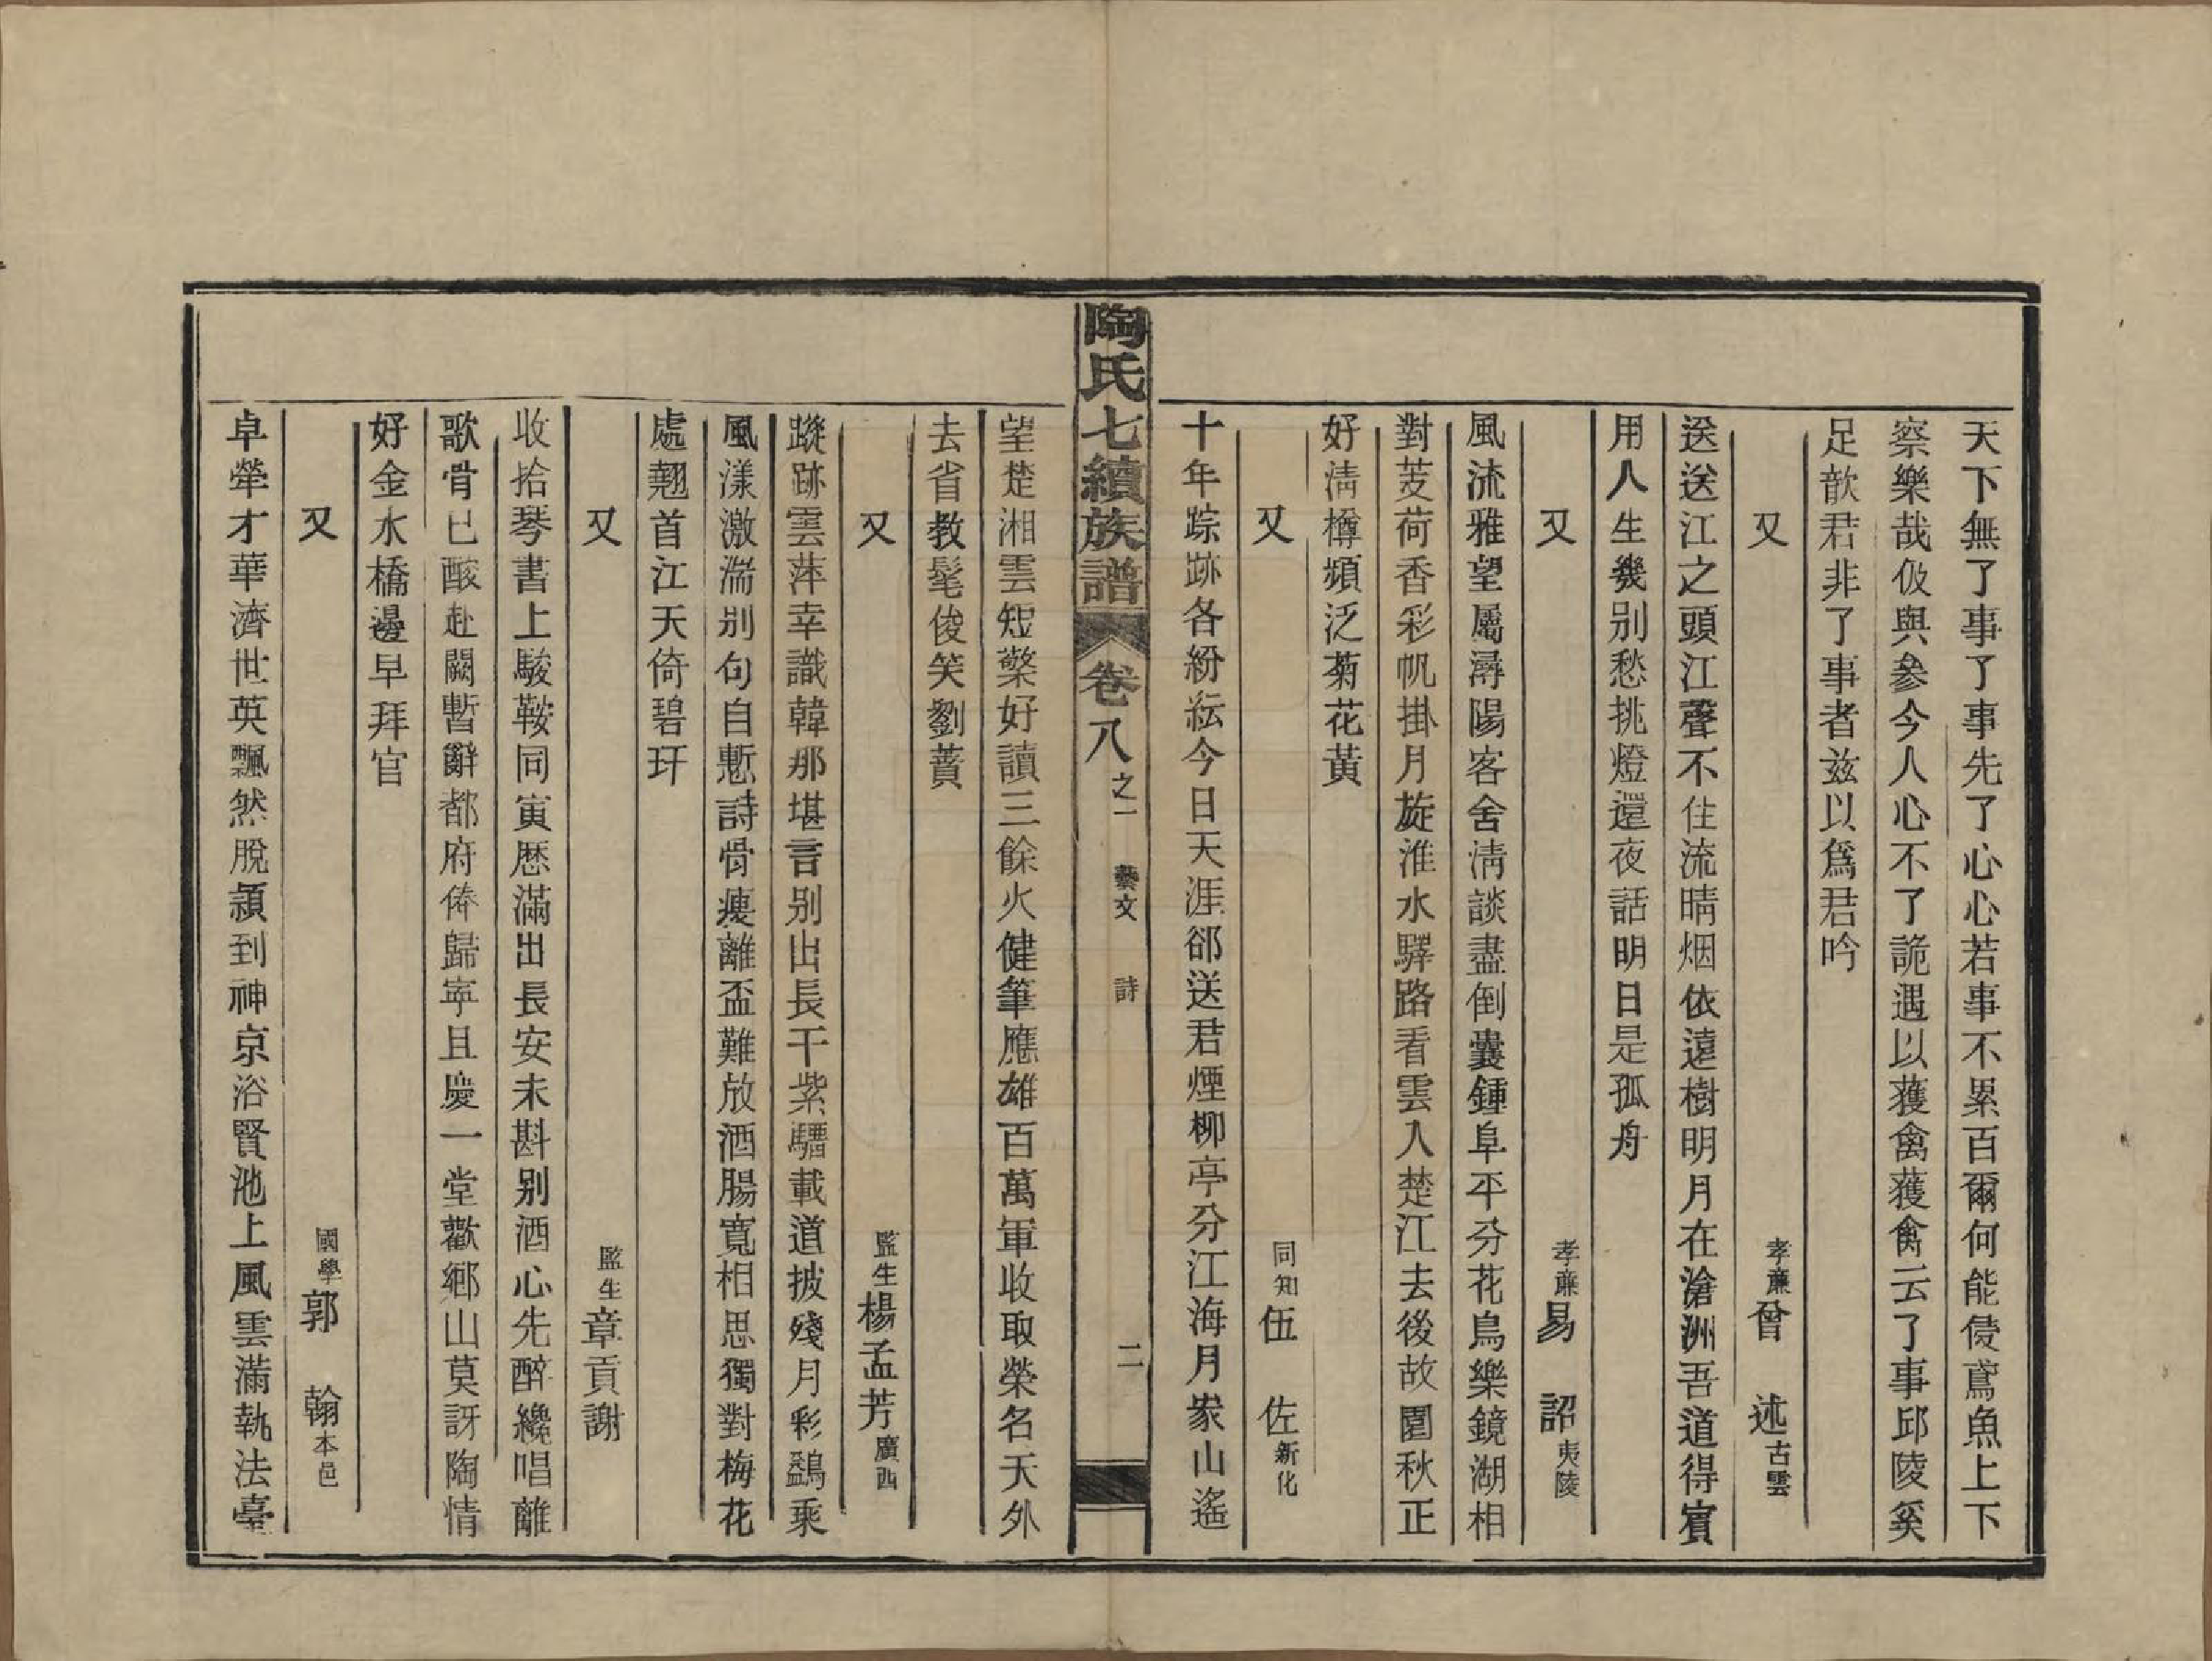 天下無了事了事先了心心若事不累百爾何能侵鳶魚上下
察樂哉伋與參今人心不了詭遇以獲禽獲禽云了事邱陵奚
足歆君非了事者兹以爲君吟
又 孝廉曾 述古雲
送送江之頭江聲不住流晴烟依遠樹明月在滄洲吾道得賓
用人生幾别愁挑燈還夜話明日是孤舟
又 孝廉易 詔夷陵
風流雅望屬潯陽客舍淸談盡倒囊鍾阜平分花鳥樂鏡湖相
對芰荷香彩帆掛月旋淮水驛路看雲入楚江去後故園秋正
好淸樽頻泛菊花黃
又 同知伍 佐新化
十年踪跡各紛紜今日天涯郤送君煙柳亭分江海月家山遙
陶氏七續族譜 卷八之一 藝文 詩 二
望楚湘雲短檠好讀三餘火健筆應雄百萬軍收取榮名天外
去省教髦俊笑劉蕡
又 監生楊孟芳廣西
蹤跡雲萍幸識韓那堪言别出長干紫騮載道披殘月彩鷁乘
風漾激湍别句自慙詩骨瘦離盃難放酒腸寬相思獨對梅花
處翹首江天倚碧玕
又 監生章貢謝
收拾琴書上駿鞍同寅歷滿出長安未斟别酒心先醉纔唱離
歌骨已酸赴闕暫辭都府俸歸寧且慶一堂歡鄉山莫訝陶情
好金水橋邊早拜官
又 國學郭 翰本邑
卓犖才華濟世英飄然脫潁到神京浴賢池上風雲滿執法臺